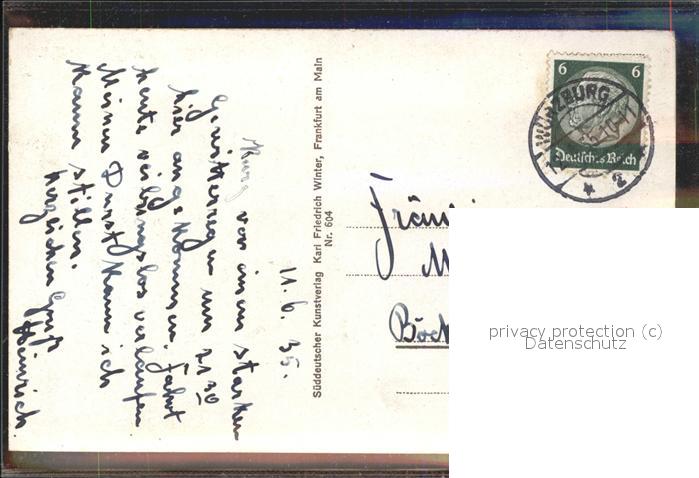 11.6.35.
Kurz vor einem starken
Gewitterregen um 21 30
hier angekommen. Fahrt
heute reibungslos verlaufen
Meinen Durst kann ich
kaum stillen.
herzlichen Gruß
Heinrich.
Süddeutscher Kunstverlag Karl Friedrich Winter, Frankfurt am Main
Nr. 604
6 6
Deutsches Reich
WÜRZBURG
2
Fräul
M
Böck
privacy protection (c)
Datenschutz